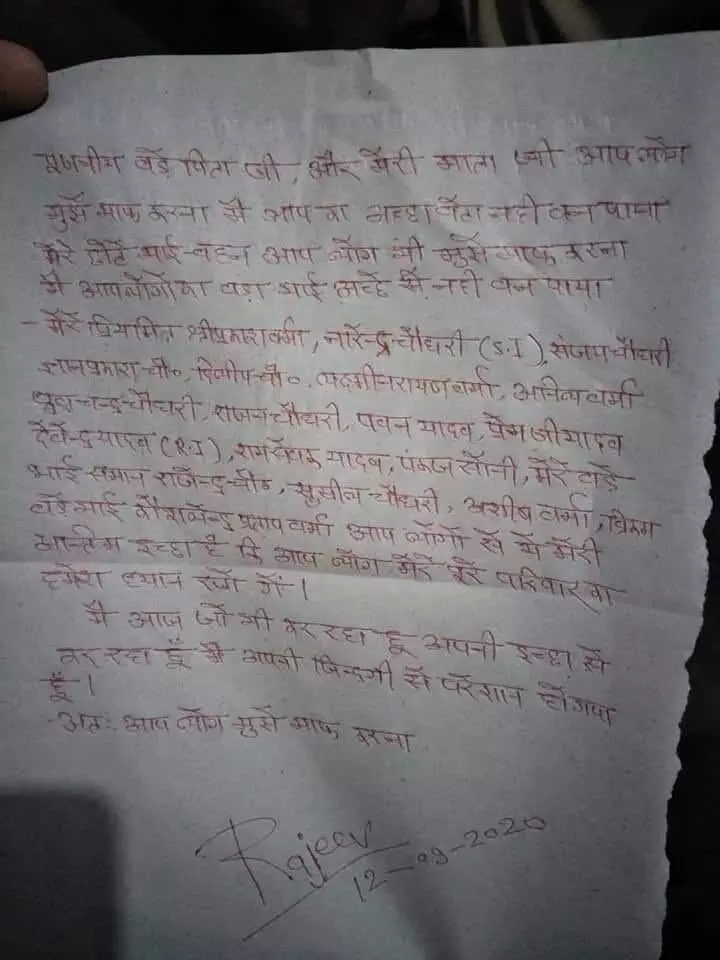 पूजनीय बड़े पिता जी, और मेरी माता जी आप लोग
मुझे माफ करना मै आप का अच्छा बेटा नही बन पाया
मेरे छोटे भाई-बहन आप लोग भी मुझे माफ करना
मै आपलोगों का बड़ा भाई अच्छे से नही बन पाया
- मेरे प्रियमित्र श्रीप्रकाश वर्मा, नरेन्द्र चौधरी (S.I), संजय चौधरी
ज्ञानप्रकाश चौ०, दिलीप चौ०, लक्ष्मीनारायण वर्मा, अनित्य वर्मा
चौधरी, राजन चौधरी, पवन यादव, प्रेम जी यादव
देवेन्द्र यादव (R.I), रामसेवक यादव, पंकज सोनी, मेरे बड़े
भाई समान राजेन्द्र चौ०, सुशील चौधरी, अशीष वर्मा,
बड़े भाई प्रताप वर्मा आप लोगों से ये मेरी
अन्तिम इच्छा है कि आप लोग मेरे पूरे परिवार का
हमेशा ध्यान रखें गें।
मै आज जो भी कर रहा हू अपनी इच्छा से
कर रहा हूँ मै अपनी जिन्दगी से परेशान हो गया
हूँ।
अतः आप लोग मुझे माफ करना
Rajeev
12-09-2020